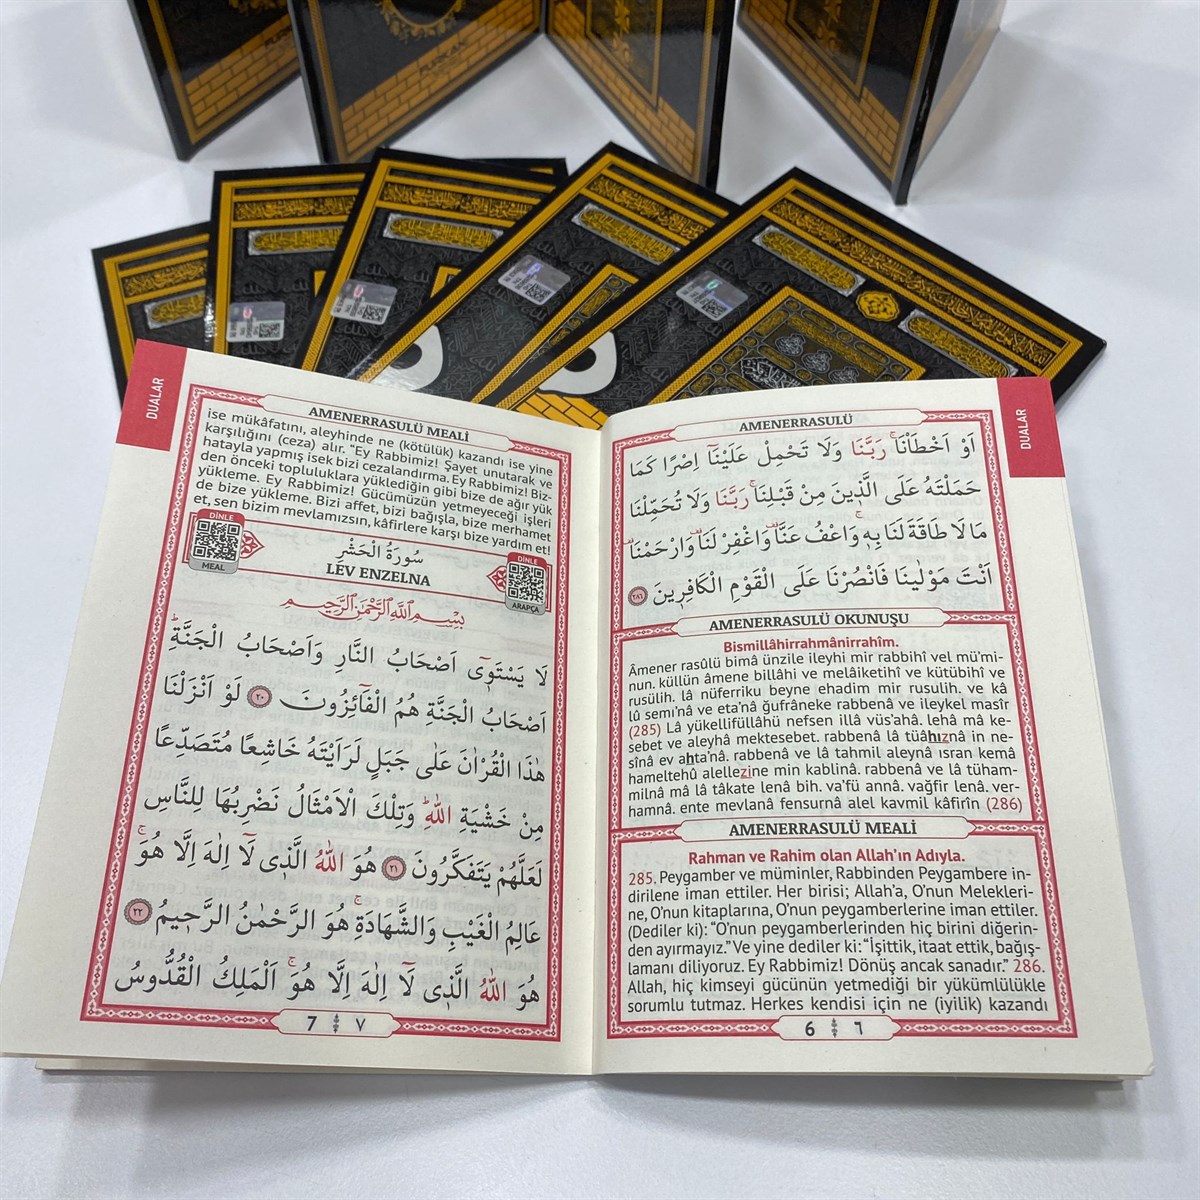 FURKAN
FURKAN
DUALAR
AMENERRASULÜ
اَوْ اَخْطَأْنَاۚ رَبَّنَا وَلَا تَحْمِلْ عَلَيْنَٓا اِصْرًا كَمَا
حَمَلْتَهُ عَلَى الَّذ۪ينَ مِنْ قَبْلِنَاۚ رَبَّنَا وَلَا تُحَمِّلْنَا
مَا لَا طَاقَةَ لَنَا بِه۪ۚ وَاعْفُ عَنَّا۠ وَاغْفِرْ لَنَا۠ وَارْحَمْنَا۠
اَنْتَ مَوْلٰينَا فَانْصُرْنَا عَلَى الْقَوْمِ الْكَافِر۪ينَ ٢٨٦
AMENERRASULÜ OKUNUŞU
Bismillâhirrahmânirrahîm.
Âmener rasûlü bimâ ünzile ileyhi mir rabbihî vel mü'mi-
nun. küllün âmene billâhi ve melâiketihî ve kütübihî ve
rusülih. lâ nüferriku beyne ehadim mir rusulih. ve kâ
lû semi'nâ ve eta'nâ ğufrâneke rabbenâ ve ileykel masîr
(285) Lâ yükellifüllâhü nefsen illâ vüs'ahâ. lehâ mâ ke-
sebet ve aleyhâ mektesebet. rabbenâ lâ tüâhıznâ in ne-
sînâ ev ahta'nâ. rabbenâ ve lâ tahmil aleynâ ısran kemâ
hameltehû alellezine min kablinâ. rabbenâ ve lâ tüham-
milnâ mâ lâ tâkate lenâ bih. va'fü annâ. vağfir lenâ. ver-
hamnâ. ente mevlanâ fensurnâ alel kavmil kâfirîn (286)
AMENERRASULÜ MEALİ
Rahman ve Rahim olan Allah'ın Adıyla.
285. Peygamber ve müminler, Rabbinden Peygambere in-
dirilene iman ettiler. Her birisi; Allah'a, O'nun Melekleri-
ne, O'nun kitaplarına, O'nun peygamberlerine iman ettiler.
(Dediler ki): "O'nun peygamberlerinden hiç birini diğerin-
den ayırmayız." Ve yine dediler ki: "İşittik, itaat ettik, bağış-
lamanı diliyoruz. Ey Rabbimiz! Dönüş ancak sanadır." 286.
Allah, hiç kimseyi gücünün yetmediği bir yükümlülükle
sorumlu tutmaz. Herkes kendisi için ne (iyilik) kazandı
6 ٦
DUALAR
AMENERRASULÜ MEALİ
ise mükâfatını, aleyhinde ne (kötülük) kazandı ise yine
karşılığını (ceza) alır. "Ey Rabbimiz! Şayet unutarak ve
hatayla yapmış isek bizi cezalandırma. Ey Rabbimiz! Biz-
den önceki topluluklara yüklediğin gibi bize de ağır yük
yükleme. Ey Rabbimiz! Gücümüzün yetmeyeceği işleri
de bize yükleme. Bizi affet, bizi bağışla, bize merhamet
et, sen bizim mevlamızsın, kâfirlere karşı bize yardım et!
DİNLE
MEAL
سُورَةُ الْحَشْرِ
LÉV ENZELNA
DİNLE
ARAPÇA
بِسْمِ اللّٰهِ الرَّحْمٰنِ الرَّح۪يمِ
لَا يَسْتَو۪ٓي اَصْحَابُ النَّارِ وَاَصْحَابُ الْجَنَّةِۜ
اَصْحَابُ الْجَنَّةِ هُمُ الْفَٓائِزُونَ ٢٠ لَوْ اَنْزَلْنَا
هٰذَا الْقُرْاٰنَ عَلٰى جَبَلٍ لَرَاَيْتَهُ خَاشِعًا مُتَصَدِّعًا
مِنْ خَشْيَةِ اللّٰهِۜ وَتِلْكَ الْاَمْثَالُ نَضْرِبُهَا لِلنَّاسِ
لَعَلَّهُمْ يَتَفَكَّرُونَ ٢١ هُوَ اللّٰهُ الَّذ۪ي لَٓا اِلٰهَ اِلَّا هُوَۚ
عَالِمُ الْغَيْبِ وَالشَّهَادَةِۚ هُوَ الرَّحْمٰنُ الرَّح۪يمُ ٢٢
هُوَ اللّٰهُ الَّذ۪ي لَٓا اِلٰهَ اِلَّا هُوَۚ اَلْمَلِكُ الْقُدُّوسُ
7 ٧